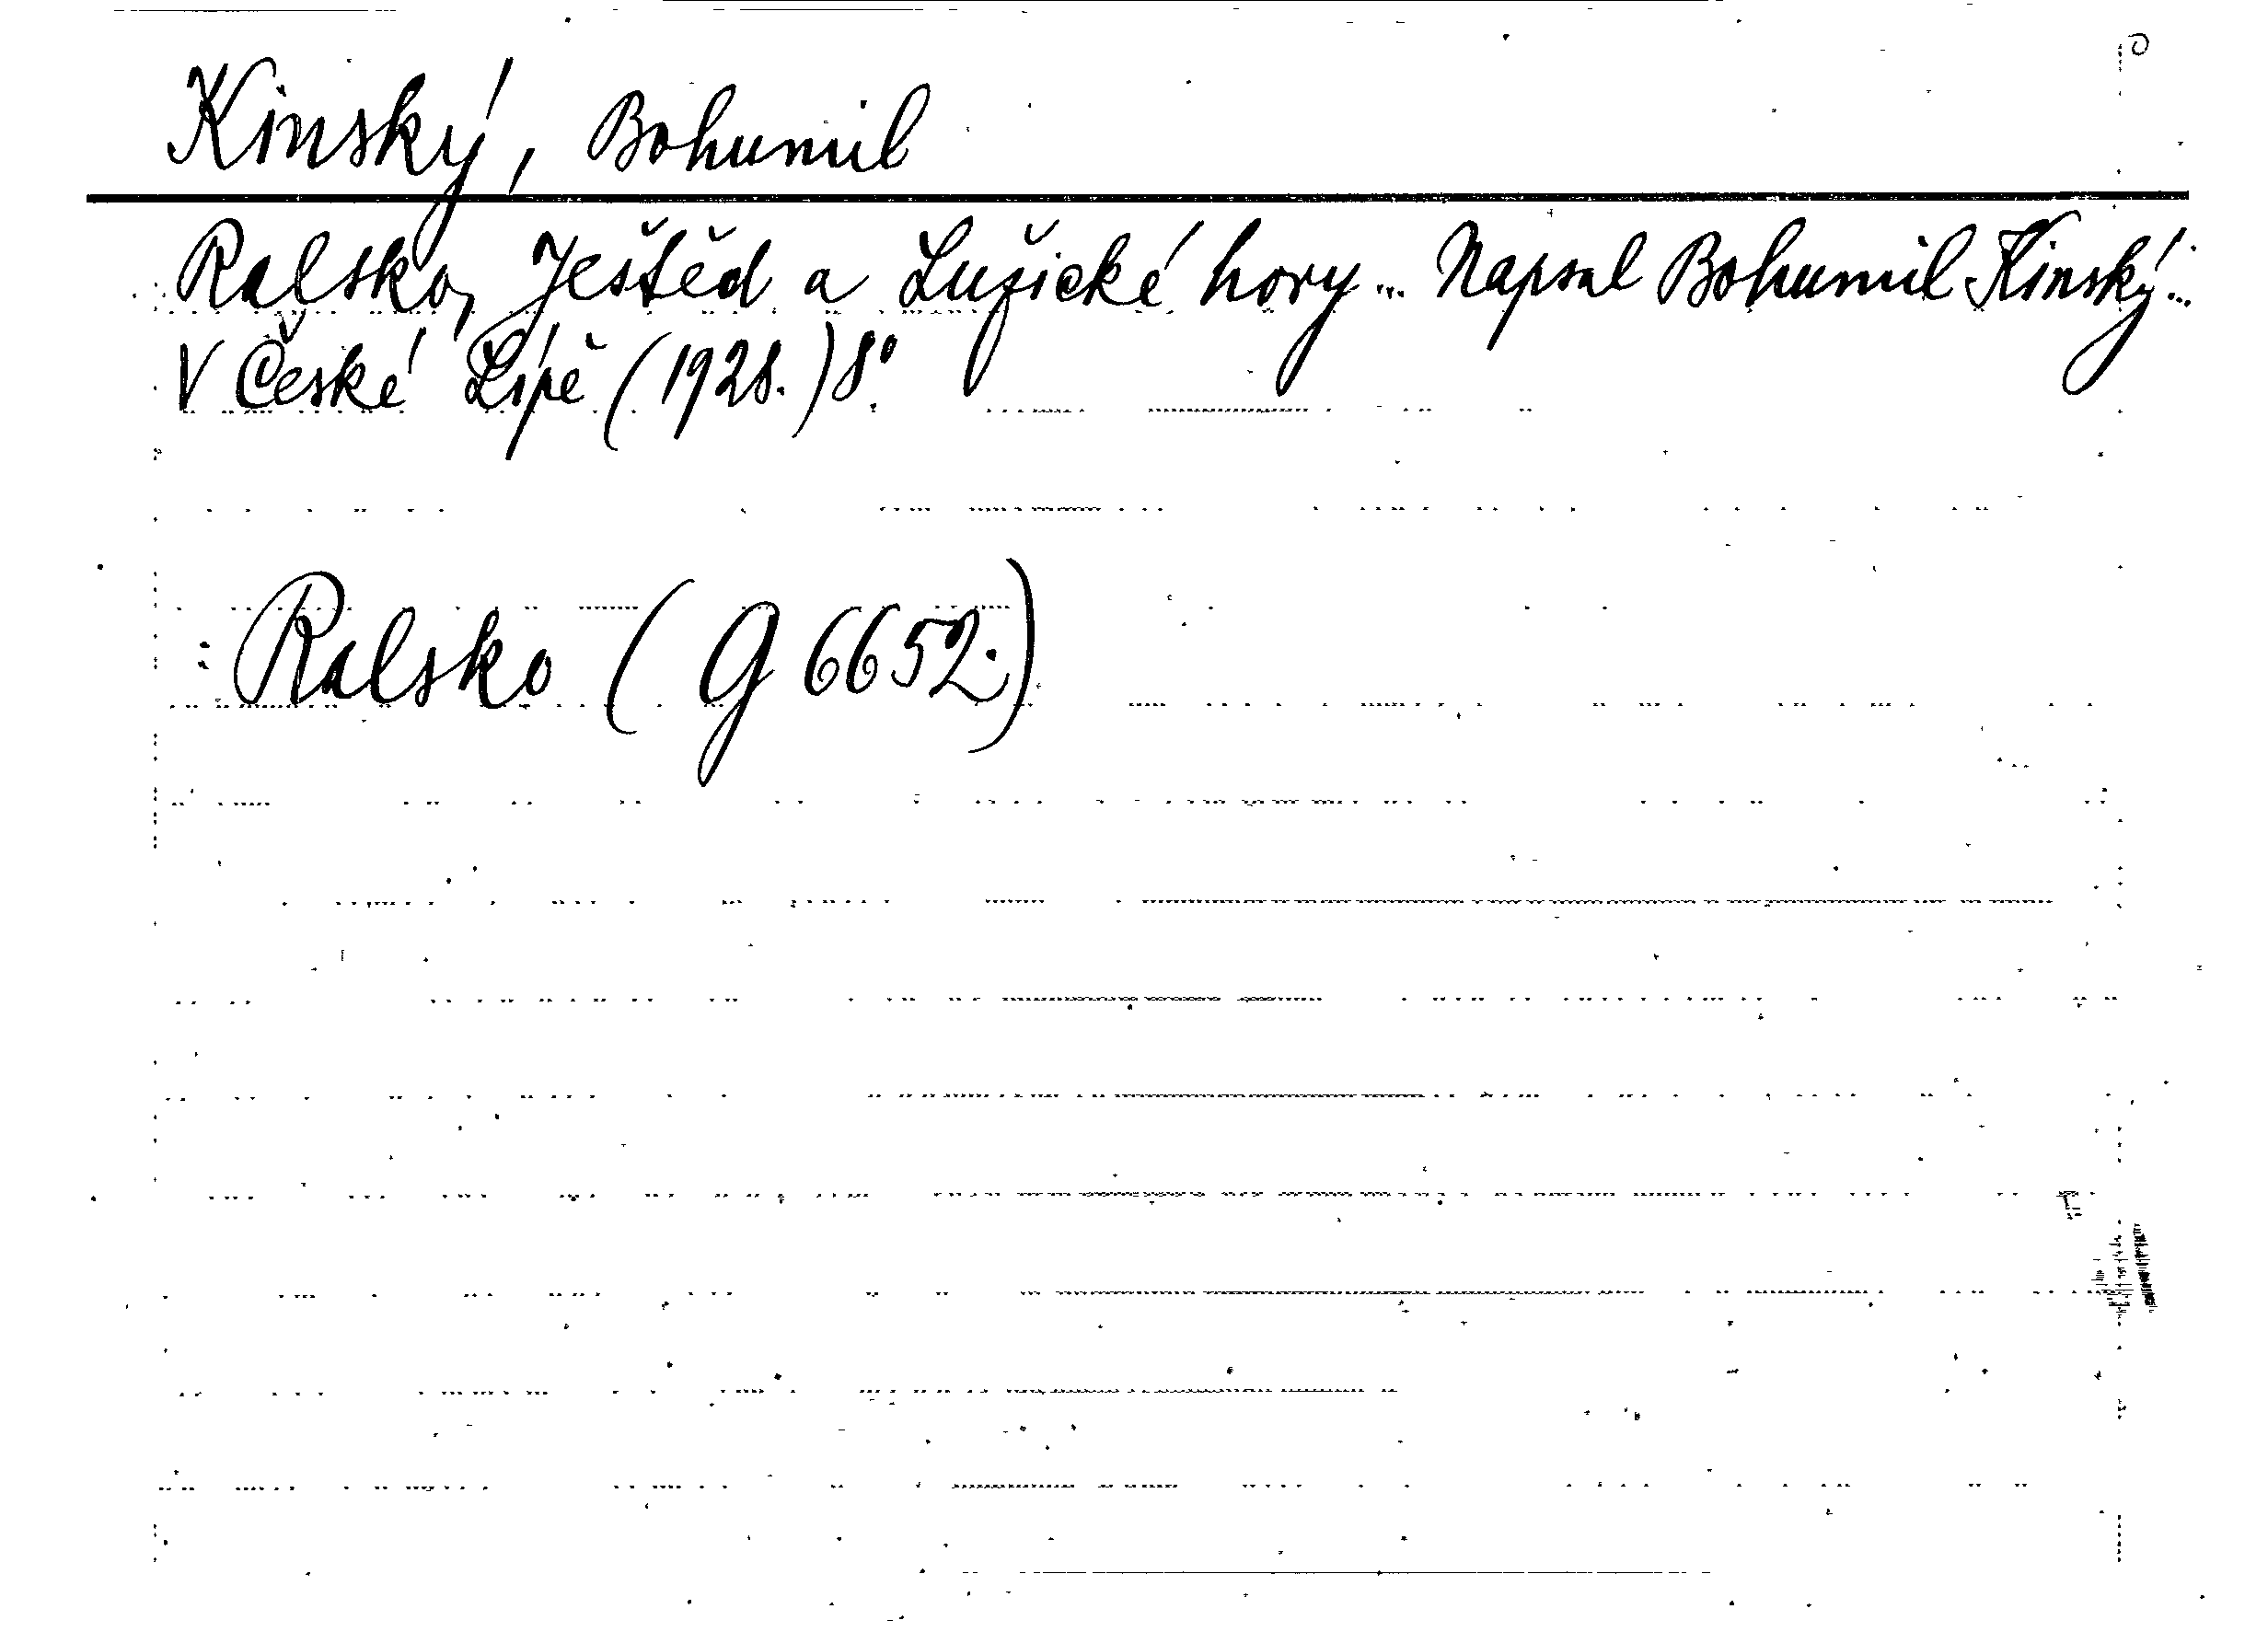 Kinský, Bohumil
Ralsko, Ještěd a Lužické hory... Napsal Bohumil Kinský...
V České Lípě (1928.) 8°.
: Ralsko (G 6652.)